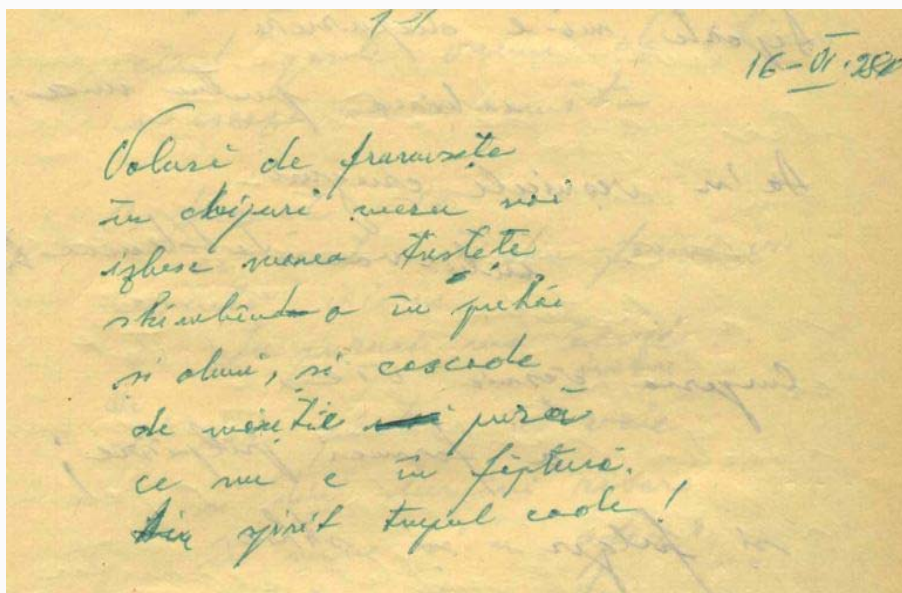 16-VI-
Valuri de frumusețe
în chipuri mereu noi
izbesc marea tristețe
skimbînd-o în puhoi
și și cascade
de pură
ce nu e în făptură.
Din spirit trupul cade!